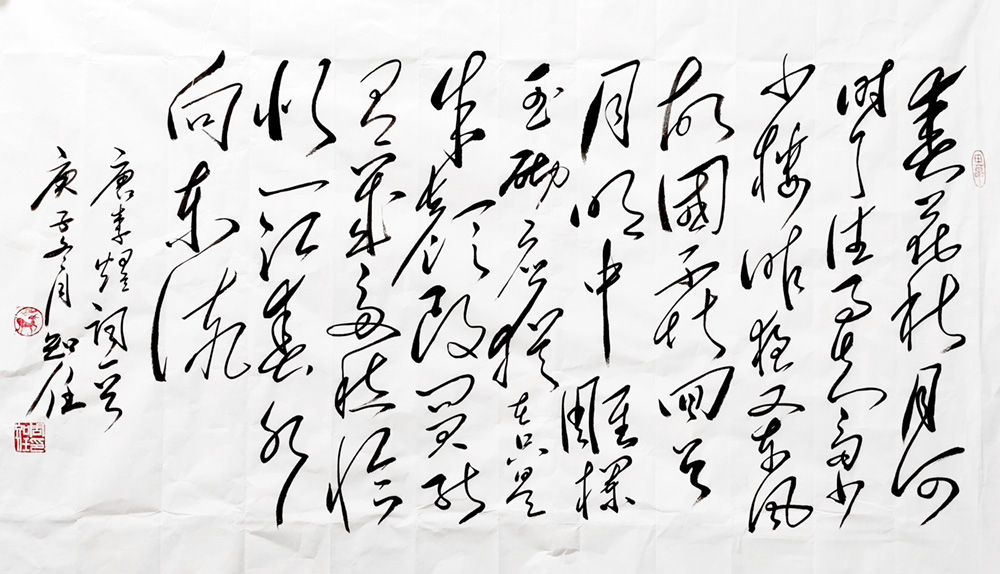 春花秋月何
時了往事知多少
小樓昨夜又东風
故國不堪回首
月明中雕欄
玉砌应犹在只是
朱颜改问君能
有幾多愁恰
似一江春水
向东流
唐李煜词一首
庚子冬月知任